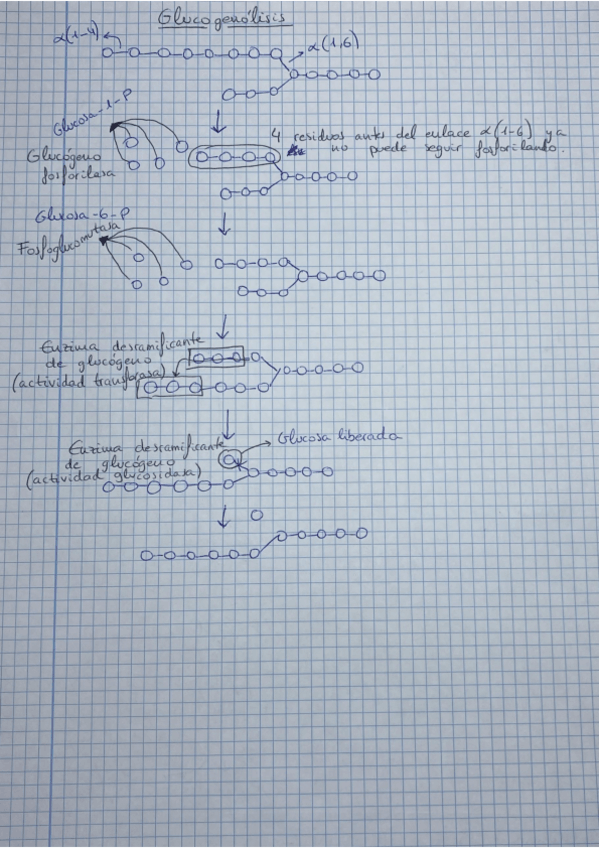 Glucogenólisis
α(1-4)
α(1,6)
Glucosa-1-P
Glucógeno
fosforilasa
4 residuos antes del enlace α(1-6) ya
no puede seguir fosforilando.
Glucosa-6-P
Fosfoglucomutasa
Enzima desramificante
de glucógeno
(actividad transferasa)
Enzima desramificante
de glucógeno
(actividad glucosidasa)
Glucosa liberada